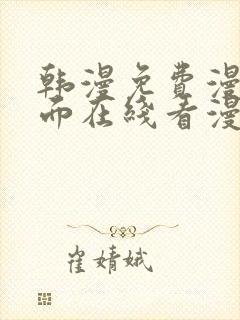 韩漫免费漫
而在线看漫
崔婧娥